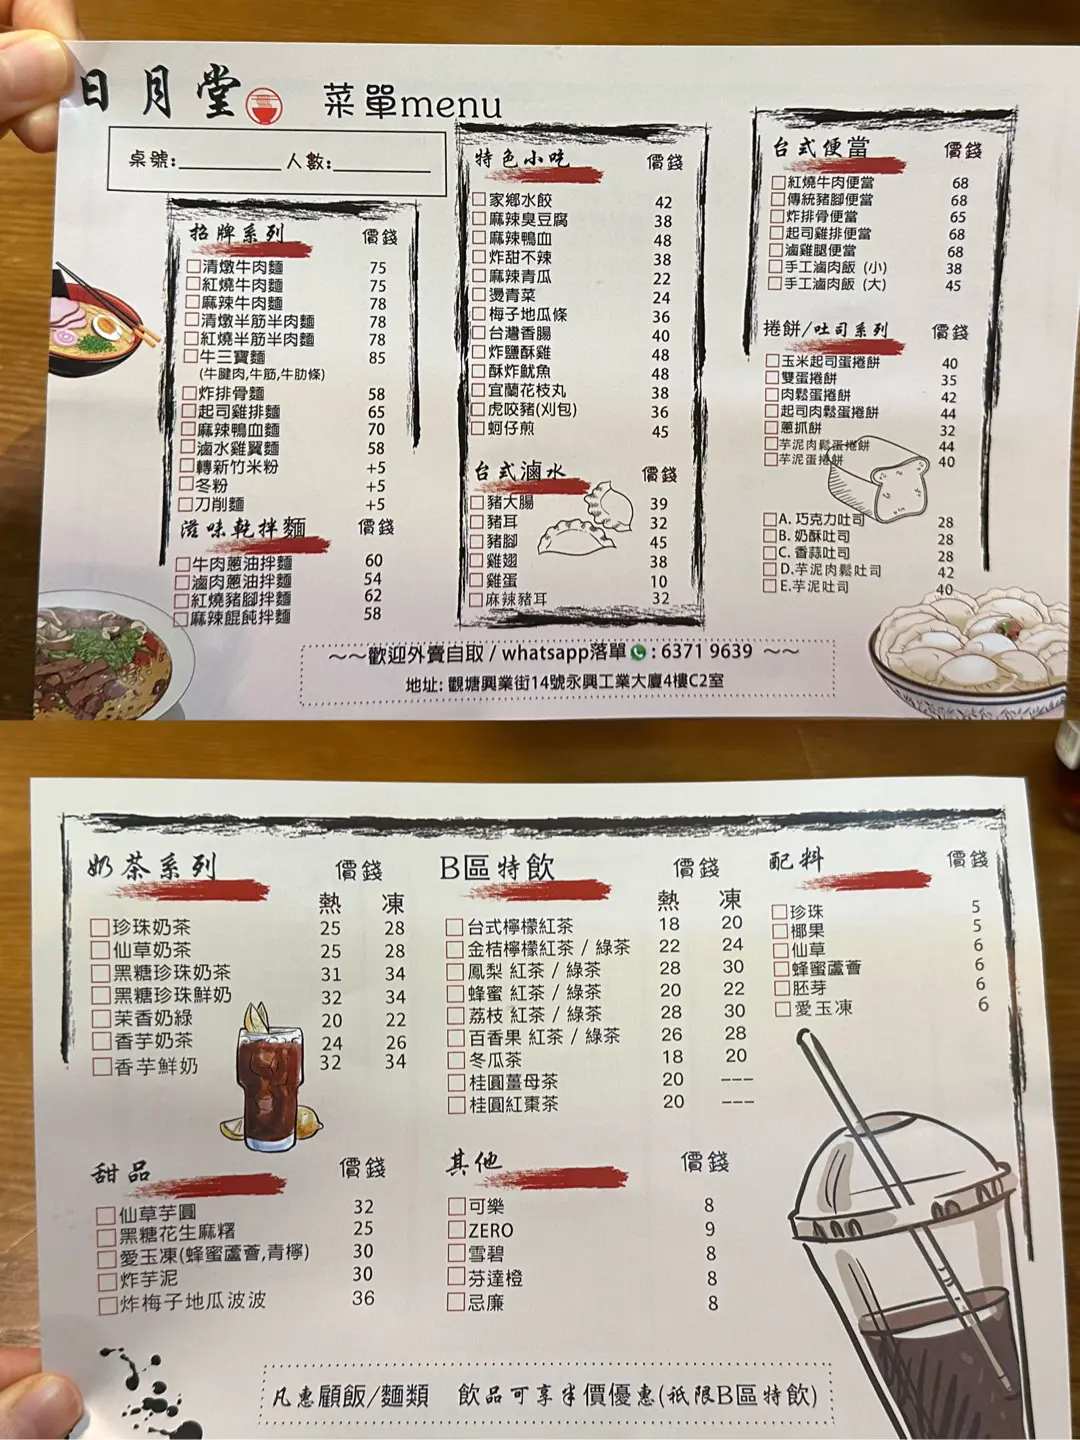 日月堂 菜單menu
桌號:________人數:________
招牌系列 價錢
清燉牛肉麵 75
紅燒牛肉麵 75
麻辣牛肉麵 78
清燉半筋半肉麵 78
紅燒半筋半肉麵 78
牛三寶麵 85
(牛腱肉,牛筋,牛肋條)
炸排骨麵 58
起司雞排麵 65
麻辣鴨血麵 70
滷水雞翼麵 58
轉新竹米粉 +5
冬粉 +5
刀削麵 +5
滋味乾拌麵 價錢
牛肉蔥油拌麵 60
滷肉蔥油拌麵 54
紅燒豬腳拌麵 62
麻辣餛飩拌麵 58
特色小吃 價錢
家鄉水餃 42
麻辣臭豆腐 38
麻辣鴨血 48
炸甜不辣 38
麻辣青瓜 22
燙青菜 24
梅子地瓜條 36
台灣香腸 40
炸鹽酥雞 48
酥炸魷魚 48
宜蘭花枝丸 38
虎咬豬(刈包) 36
蚵仔煎 45
台式滷水 價錢
豬大腸 39
豬耳 32
豬腳 45
雞翅 38
雞蛋 10
麻辣豬耳 32
台式便當 價錢
紅燒牛肉便當 68
傳統豬腳便當 68
炸排骨便當 65
起司雞排便當 68
滷雞腿便當 68
手工滷肉飯 (小) 38
手工滷肉飯 (大) 45
捲餅/吐司系列 價錢
玉米起司蛋捲餅 40
雙蛋捲餅 35
肉鬆蛋捲餅 42
起司肉鬆蛋捲餅 44
蔥抓餅 32
芋泥肉鬆蛋捲餅 44
芋泥蛋捲餅 40
A. 巧克力吐司 28
B. 奶酥吐司 28
C. 香蒜吐司 28
D.芋泥肉鬆吐司 42
E.芋泥吐司 40
～～歡迎外賣自取 / whatsapp落單 : 6371 9639 ～～
地址: 觀塘興業街14號永興工業大廈4樓C2室
奶茶系列 價錢
熱 凍
珍珠奶茶 25 28
仙草奶茶 25 28
黑糖珍珠奶茶 31 34
黑糖珍珠鮮奶 32 34
茉香奶綠 20 22
香芋奶茶 24 26
香芋鮮奶 32 34
甜品 價錢
仙草芋圓 32
黑糖花生麻糬 25
愛玉凍(蜂蜜蘆薈,青檸) 30
炸芋泥 30
炸梅子地瓜波波 36
B區特飲 價錢
熱 凍
台式檸檬紅茶 18 20
金桔檸檬紅茶 / 綠茶 22 24
鳳梨 紅茶 / 綠茶 28 30
蜂蜜 紅茶 / 綠茶 20 22
荔枝 紅茶 / 綠茶 28 30
百香果 紅茶 / 綠茶 26 28
冬瓜茶 18 20
桂圓薑母茶 20 ---
桂圓紅棗茶 20 ---
其他 價錢
可樂 8
ZERO 9
雪碧 8
芬達橙 8
忌廉 8
配料 價錢
珍珠 5
椰果 5
仙草 6
蜂蜜蘆薈 6
胚芽 6
愛玉凍 6
凡惠顧飯/麵類 飲品可享半價優惠(祇限B區特飲)